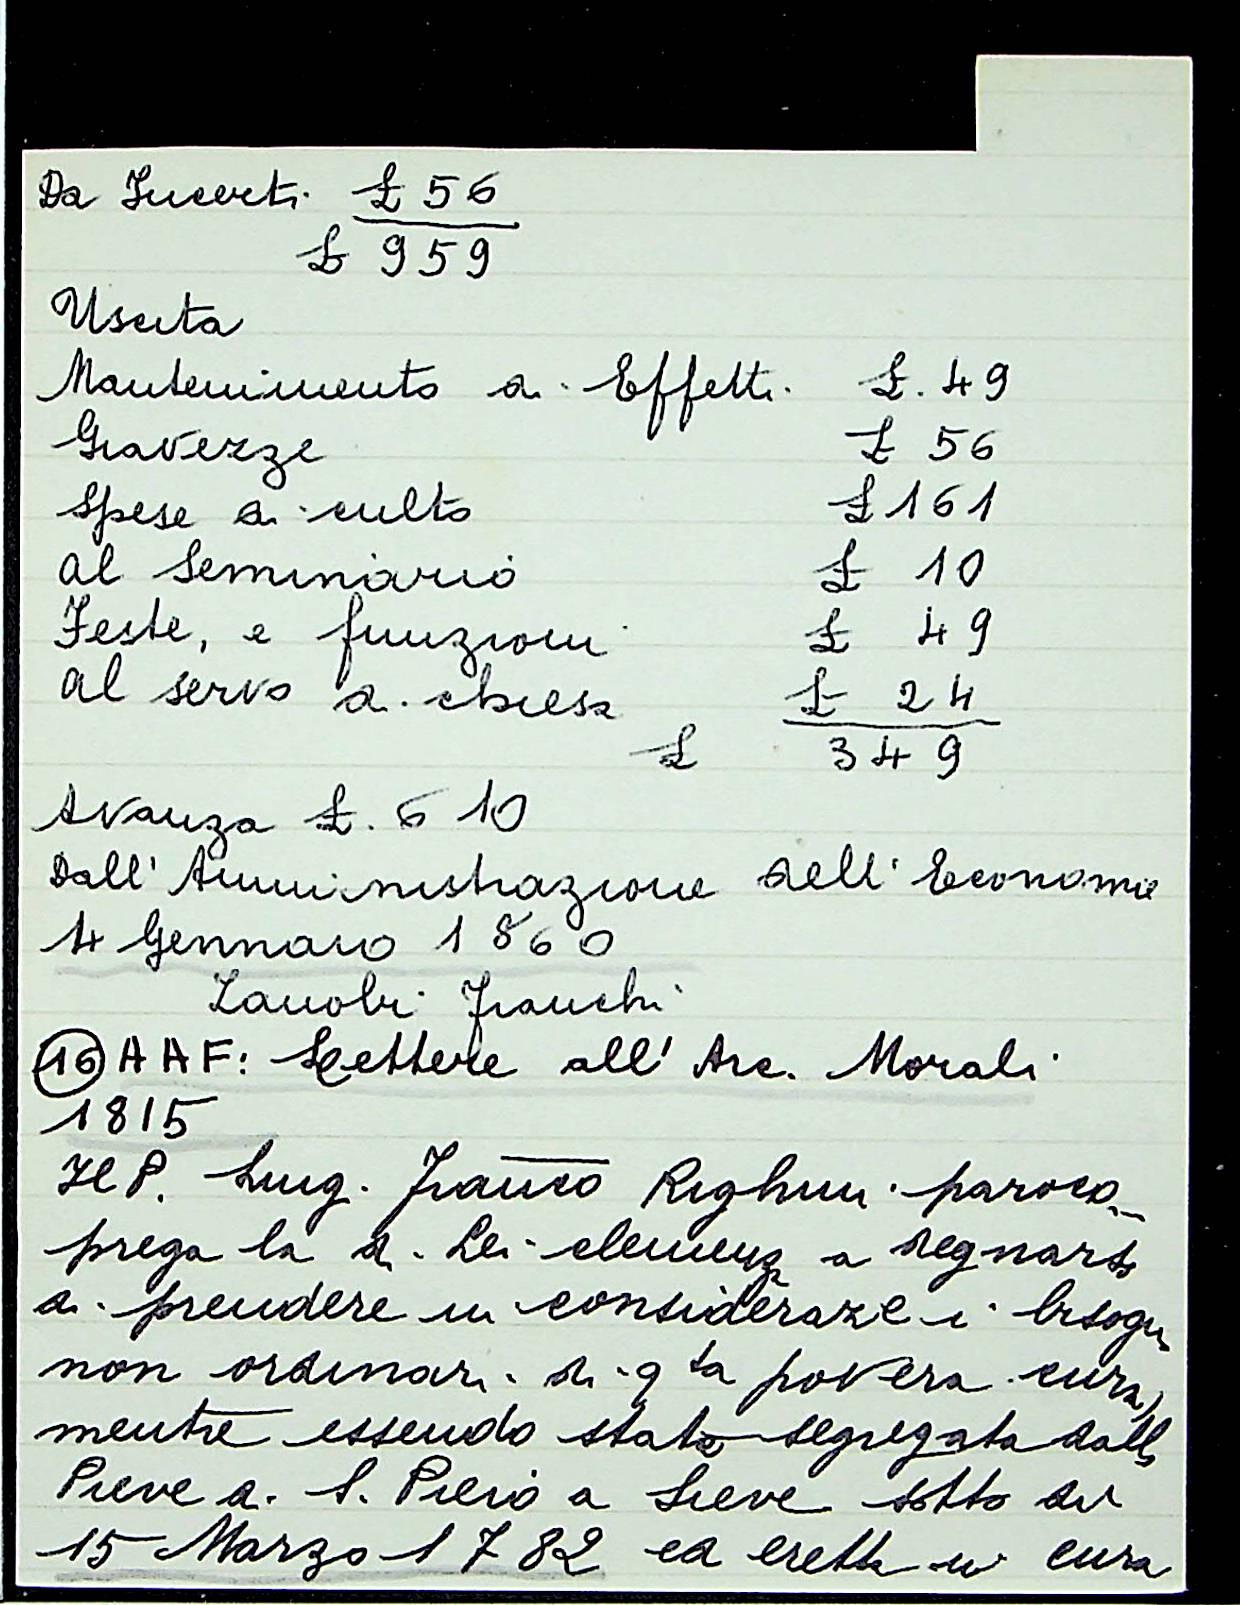 Da Incerti £ 56
£ 959
Uscita
Mantenimento di Effetti £. 49
Gravezze £ 56
Spese di culto £ 161
al Seminario £ 10
Feste, e funzioni £ 49
al servo di chiesa £ 24
£ 349
Avanza £. 610
Dall' Amministrazione dell' Economie
4 Gennaio 1860
Zanobi Franchi
16 AAF: Lettere all' Arc. Morali
1815
Il P. Luig. Franco Righini paroco
prega la di Lei clemenz a degnarsi
di prendere in consideraze i bisogni
non ordinari di qta povera cura,
mentre essendo stata segregata dalla
Pieve di S. Piero a Sieve sotto di
15 Marzo 1782 ed eretta in cura